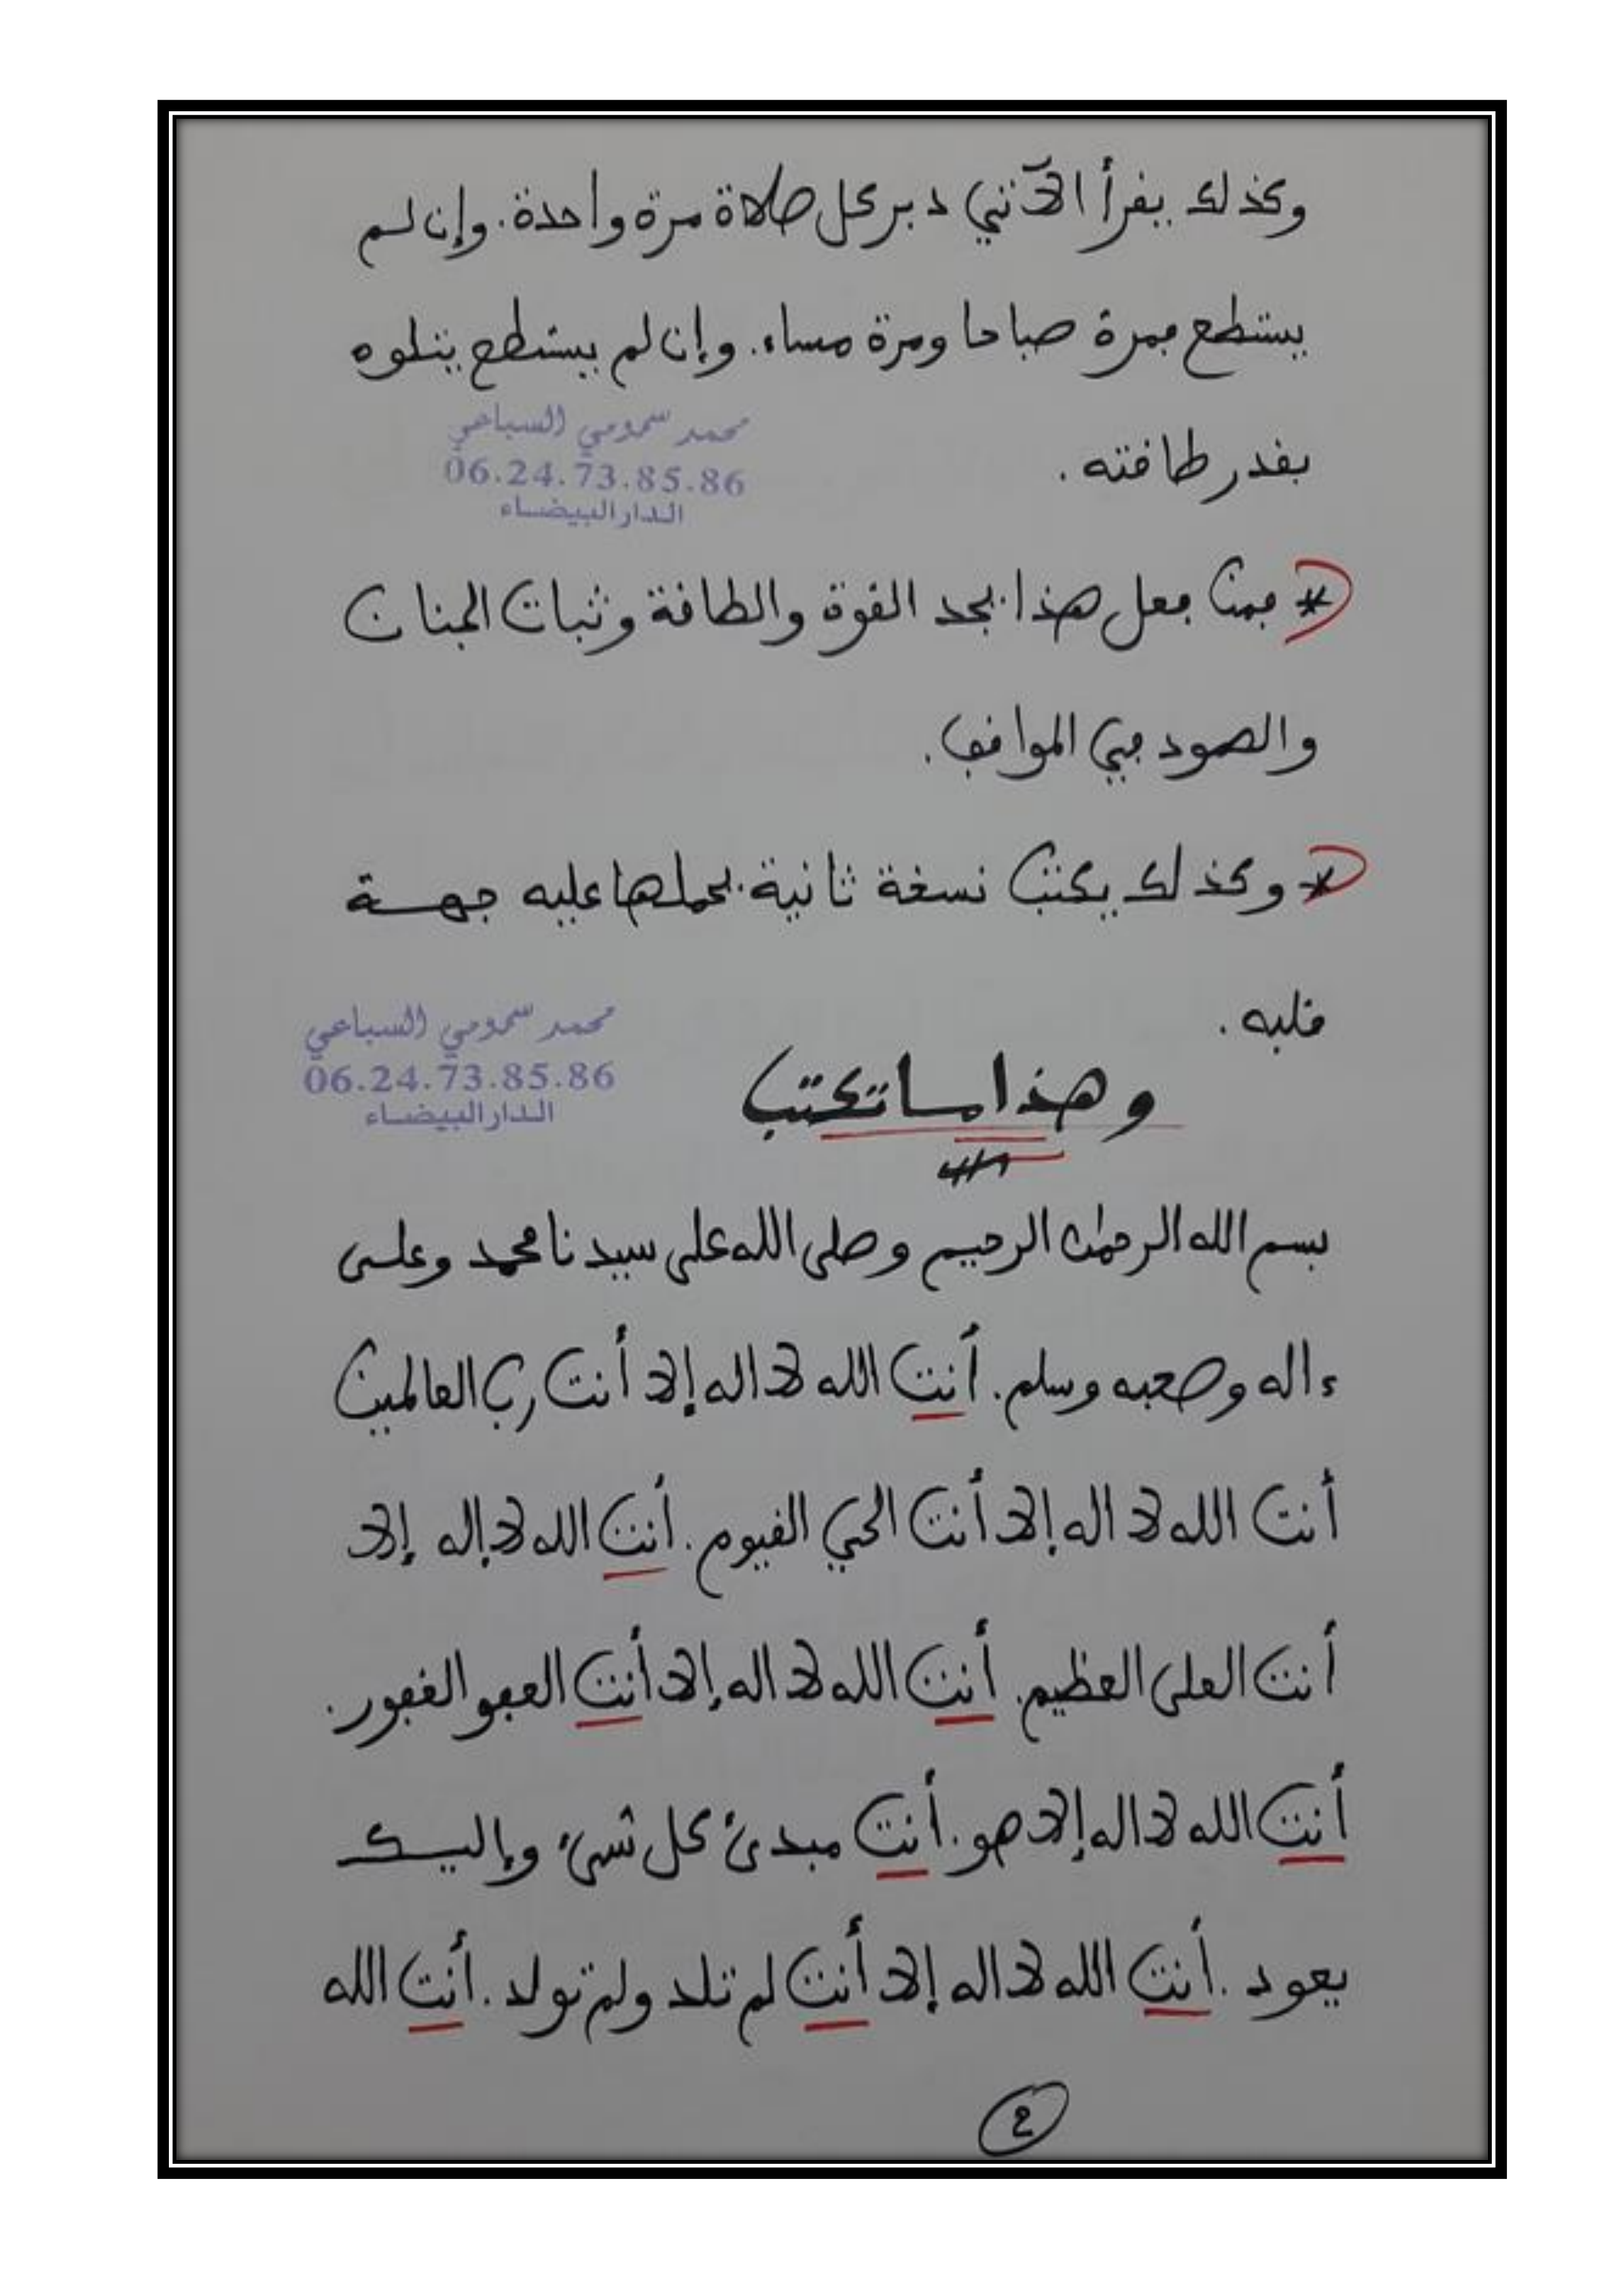 وكذلك يقرأ الآتي دبر كل صلاة مرة واحدة. وإن لم
يستطع فمرة صباحا ومرة مساء. وإن لم يستطع يتلوه
بقدر طاقته.
محمد سمومي السباعي
06.24.73.85.86
الدار البيضاء
* فمن فعل هذا يجد القوة والطاقة وثبات الجنان
والصمود في المواقف.
* وكذلك يكتب نسخة ثانية يحملها عليه جهة
قلبه.
محمد سمومي السباعي
06.24.73.85.86
الدار البيضاء
وهذا ما تكتب
بسم الله الرحمان الرحيم وصلى الله على سيدنا محمد وعلى
ءاله وصحبه وسلم. أنت الله لا اله إلا أنت رب العالمين
أنت الله لا اله إلا أنت الحي القيوم. أنت الله لا إله إلا
أنت العلى العظيم. أنت الله لا اله إلا أنت العفو الغفور.
أنت الله لا اله إلا هو. أنت مبدئ كل شيء وإليك
يعود. أنت الله لا اله إلا أنت لم تلد ولم تولد. أنت الله
2